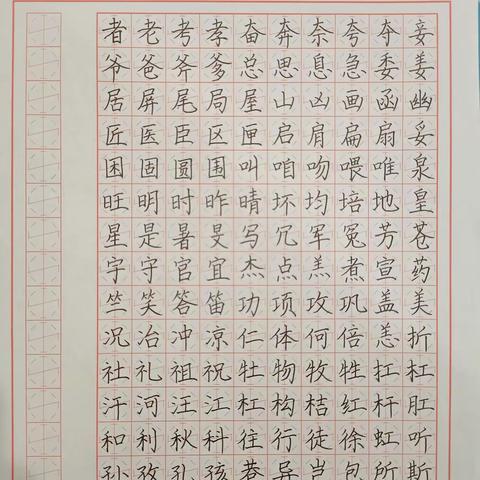 者老考孝奋奔奈夸夺妾
爷爸斧爹总思息急委姜
居屏尾局屋山凶画函幽
匠医臣区匣启肩扁扇妥
困固圆围叫咱吻喂唯泉
旺明时昨晴坏均培地皇
星是暑旻写冗军冤芳苍
宇守官宜杰点羔煮宣药
竺笑答笛功项攻巩盖美
况冶冲凉仁体何倍恙折
社礼祖祝牡物牧牲扛杠
汗河汪江杠构桔红杆肛
和利秋科往行徒徐虹听
孙孜孔孩巷异岂包所斯